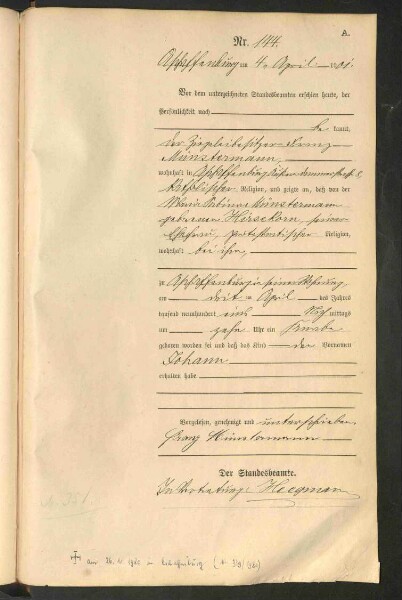 A.
Nr. 144.
Aschaffenburg am 4. April 1901.
Vor dem unterzeichneten Standesbeamten erschien heute, der
Persönlichkeit nach
be kannt,
der Ziegleibesitzer Franz
Münstermann,
wohnhaft in Aschaffenburg
katholischer Religion, und zeigte an, daß von der
Maria Münstermann
geborenen Hirsekorn, seiner
Ehefrau, protestantischer Religion,
wohnhaft bei ihm,
zu Aschaffenburg in seiner Wohnung
am drit= April des Jahres
tausend neunhundert eins Nach mittags
um zehn Uhr ein Knabe
geboren worden sei und daß das Kind den Vornamen
Johann
erhalten habe
Vorgelesen, genehmigt und unterschrieben
Franz Münstermann
Der Standesbeamte.
In Vertretung: Heegmann